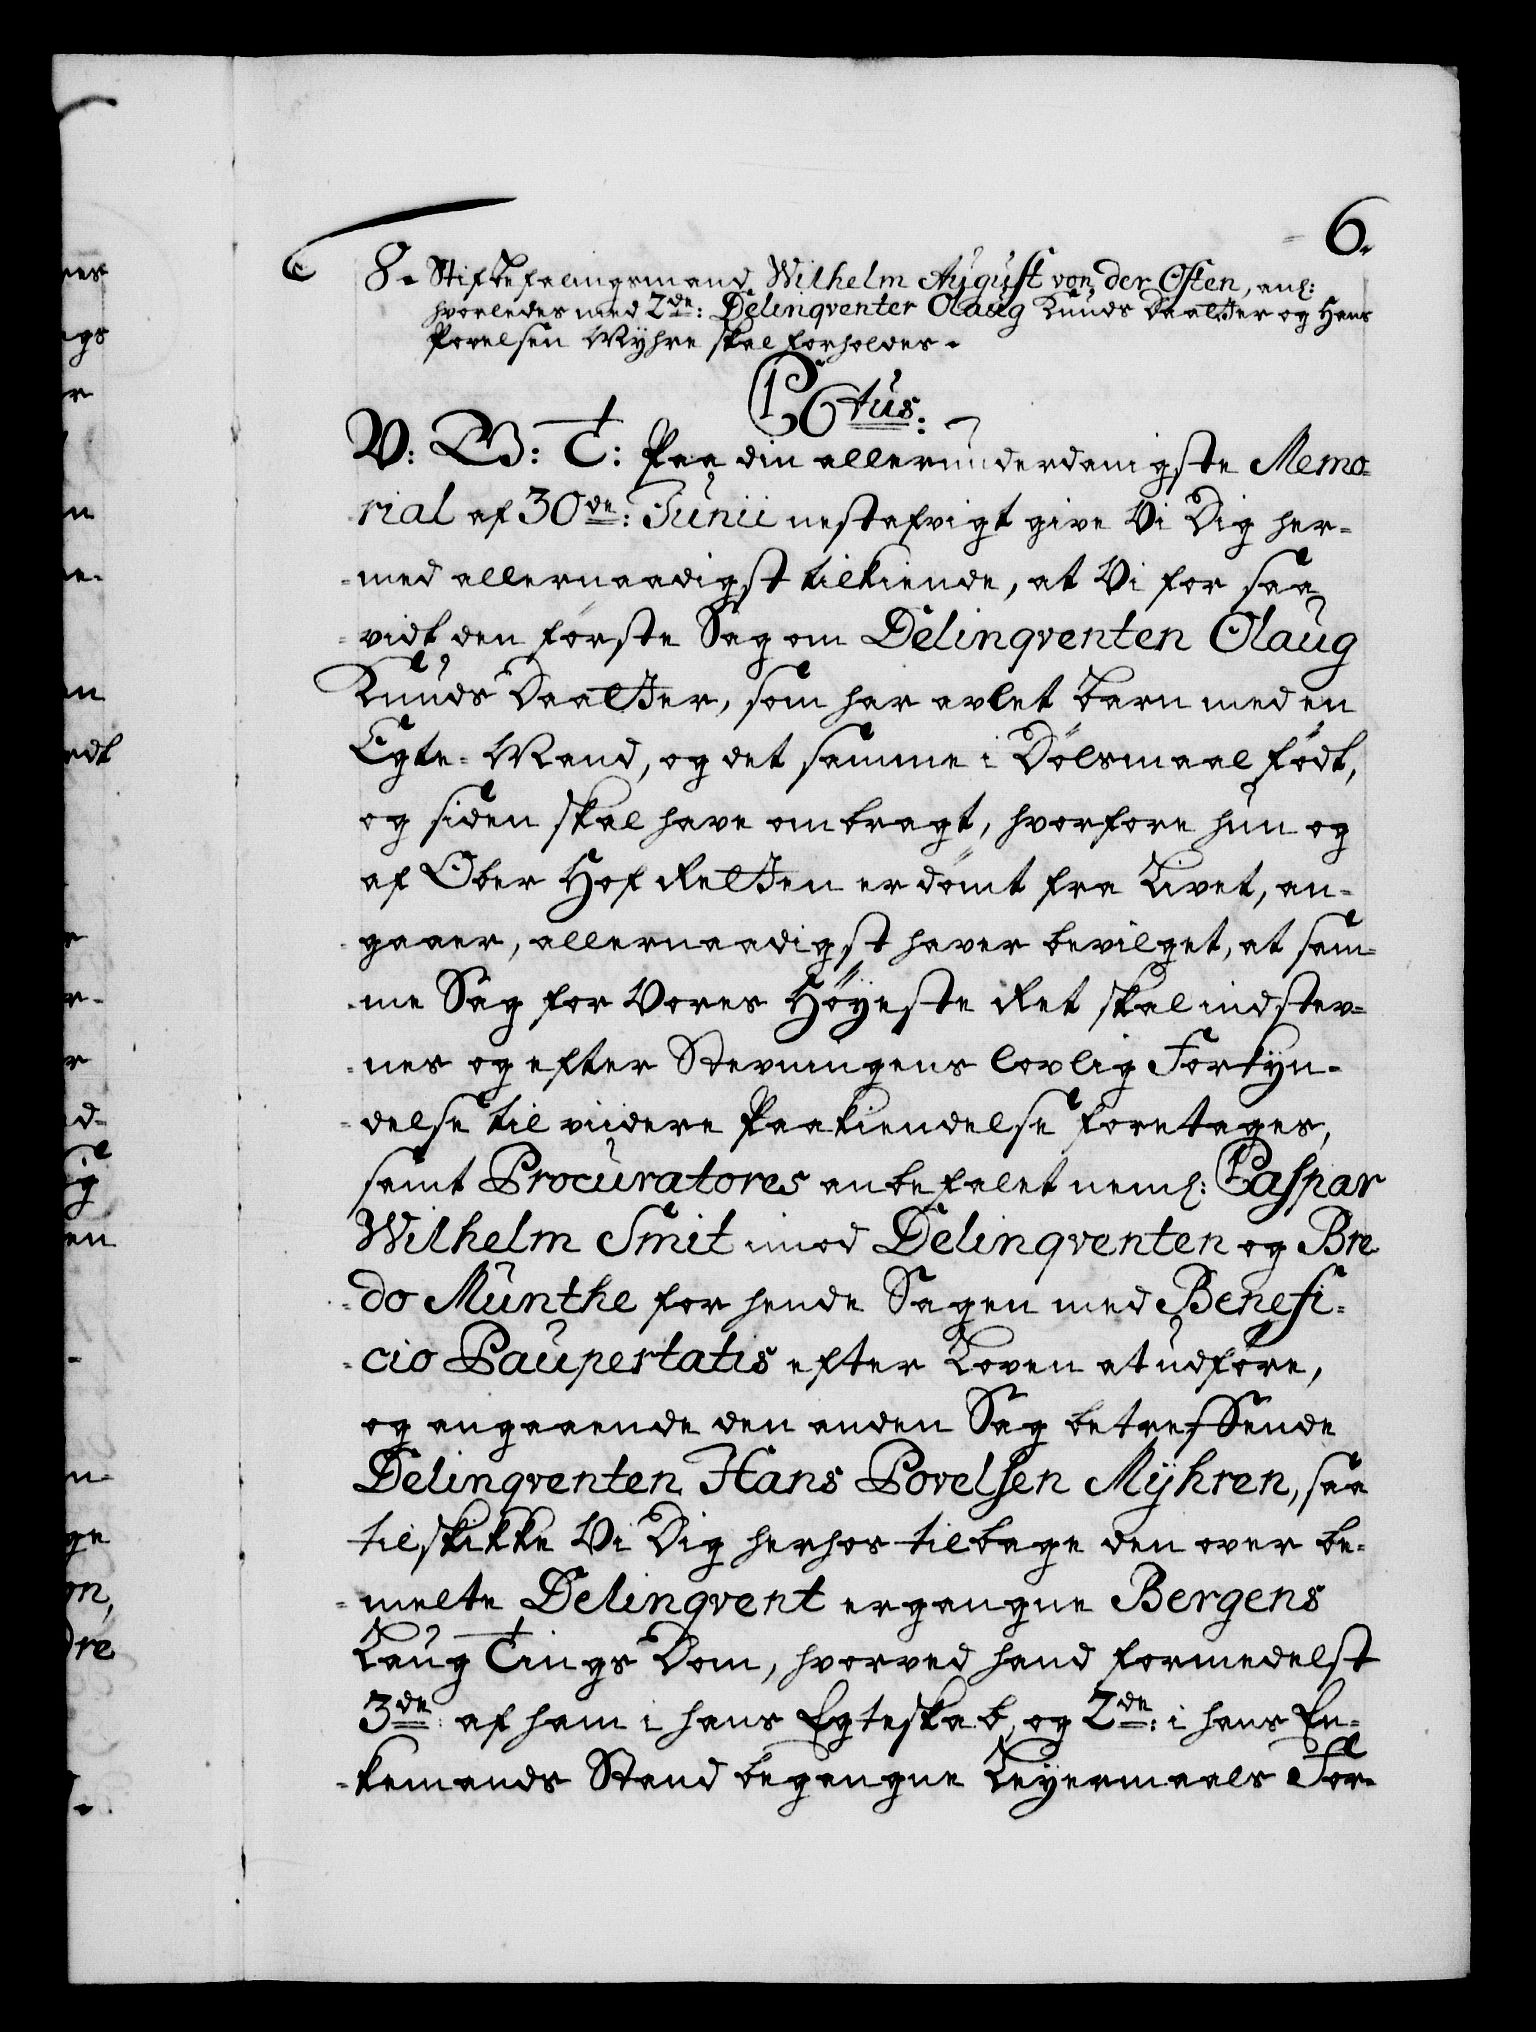 6.
8. Stiftbefalingsmand Wilhelm August von der Osten, anl:
hvorledes med 2de: Delinqventer Olaug Knuds Daatter og Hans
Povelsen Myhre skal forholdes.
C6tus:
V: G: T: Paa din allerunderdanigste Memo-
rial af 30de: Junii nestafvigt give Vi Dig her-
-med allernaadigst tilkiende, at Vi for saa
-vidt den første Sag om Delinqventen Olaug
Knuds Daatter, som har avlet Barn med en
Egte-Mand, og det samme i Dølsmaal født,
og siden skal have ombragt, hvorfore hun og
af Ober Hof Retten er dømt fra Livet, an-
-gaaer, allernaadigst haver bevilget, at sam-
-me Sag for Vores Höyeste Ret skal indstev-
-nes og efter Stevningens lovlig Forkyn-
-delse til viidere Paakiendelse foretages,
samt Procuratores anbefalet neml: Caspar
Wilhelm Smit imod Delinqventen og Bre
-do Munthe for hende Sagen med Benefi-
-cio Paupertatis efter Loven at udføre,
og angaaende den anden Sag betreffende
Delinqventen Hans Povelsen Myhren, saa
tilskikke Vi Dig herhos tilbage den over be-
-melte Delinqvent ergangne Bergens
Laug Tings Dom, hvorved hand formedelst
3de: af ham i hans Egteskab, og 2de: i hans En-
-kemands Stand begangne Leyermaals For-